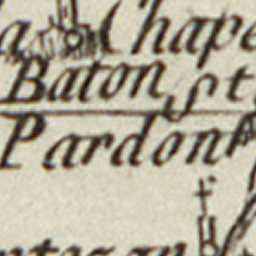 la Chape
Baton St
Pardon